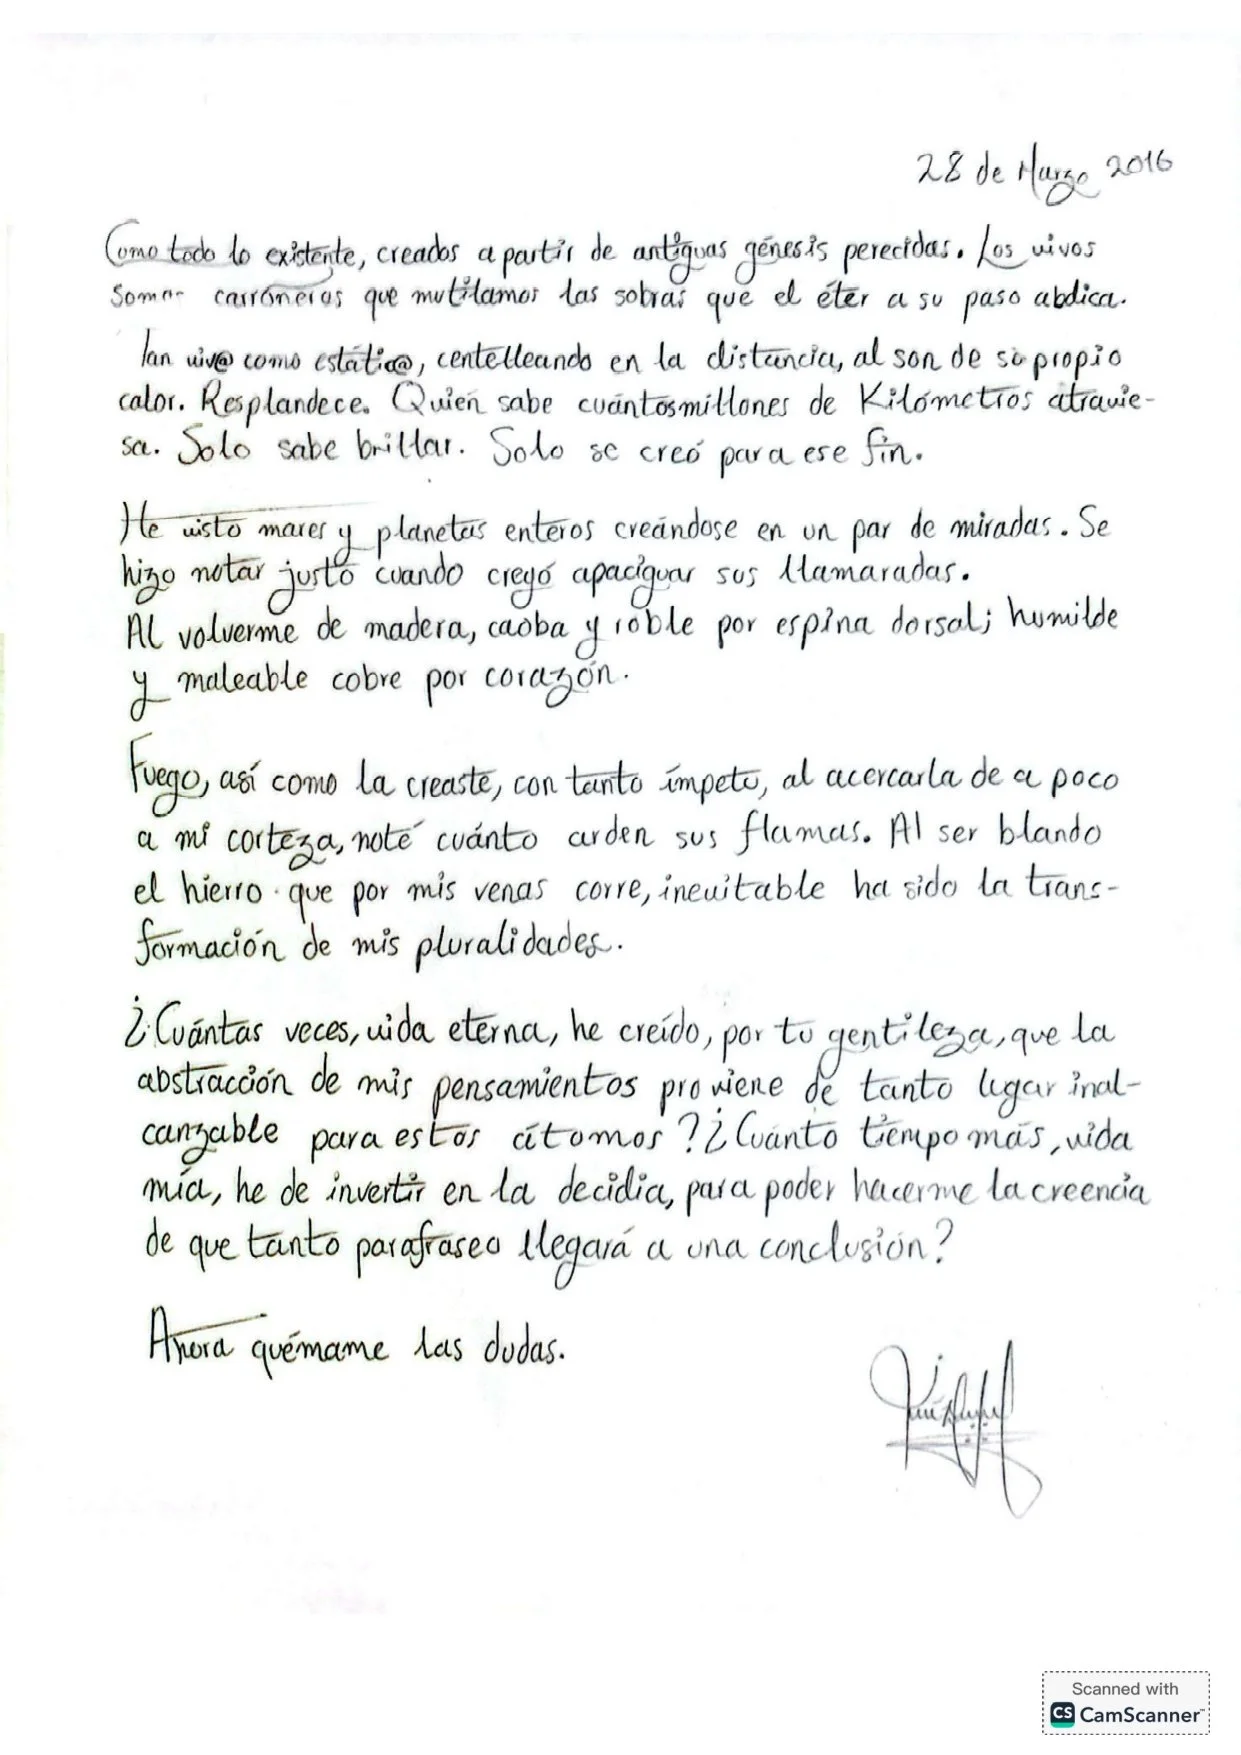 28 de Marzo 2016
Como todo lo existente, creados a partir de antiguas génesis perecidas. Los vivos
somos carroñeros que mutilamos las sobras que el éter a su paso abdica.
Tan viv@ como estátic@, centelleando en la distancia, al son de su propio
calor. Resplandece. Quien sabe cuántos millones de Kilómetros atravie-
sa. Solo sabe brillar. Solo se creó para ese fin.
He visto mares y planetas enteros creándose en un par de miradas. Se
hizo notar justo cuando creyó apaciguar sus llamaradas.
Al volverme de madera, caoba y roble por espina dorsal; humilde
y maleable cobre por corazón.
Fuego, así como la creaste, con tanto ímpetu, al acercarla de a poco
a mi corteza, noté cuánto arden sus flamas. Al ser blando
el hierro que por mis venas corre, inevitable ha sido la trans-
formación de mis pluralidades.
¿Cuántas veces, vida eterna, he creído, por tu gentileza, que la
abstracción de mis pensamientos proviene de tanto lugar inal-
canzable para estos átomos? ¿Cuánto tiempo más, vida
mía, he de invertir en la decidia, para poder hacerme la creencia
de que tanto parafraseo llegará a una conclusión?
Ahora quémame las dudas.
Scanned with
CS CamScanner